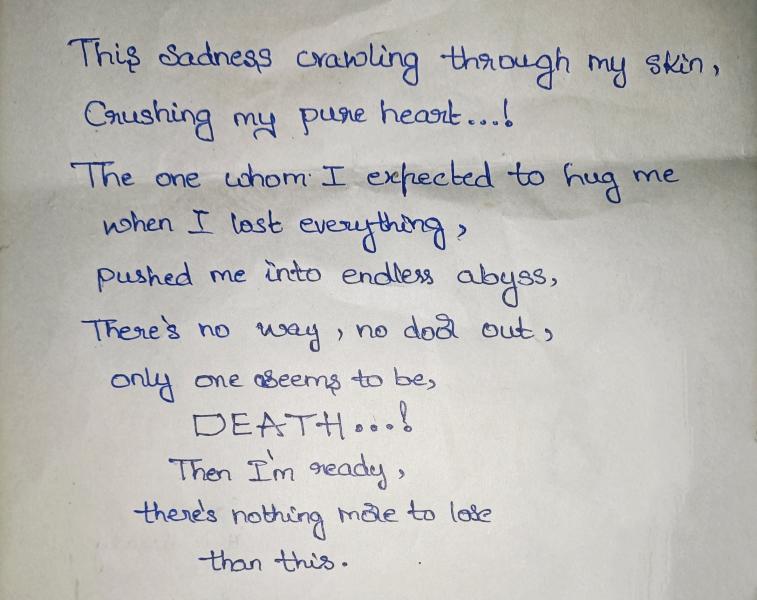 This Sadness crawling through my skin,
Crushing my pure heart...!
The one whom I expected to hug me
when I lost everything,
pushed me into endless abyss,
There's no way, no door out,
only one seems to be,
DEATH...!
Then I'm ready,
there's nothing more to lose
than this.